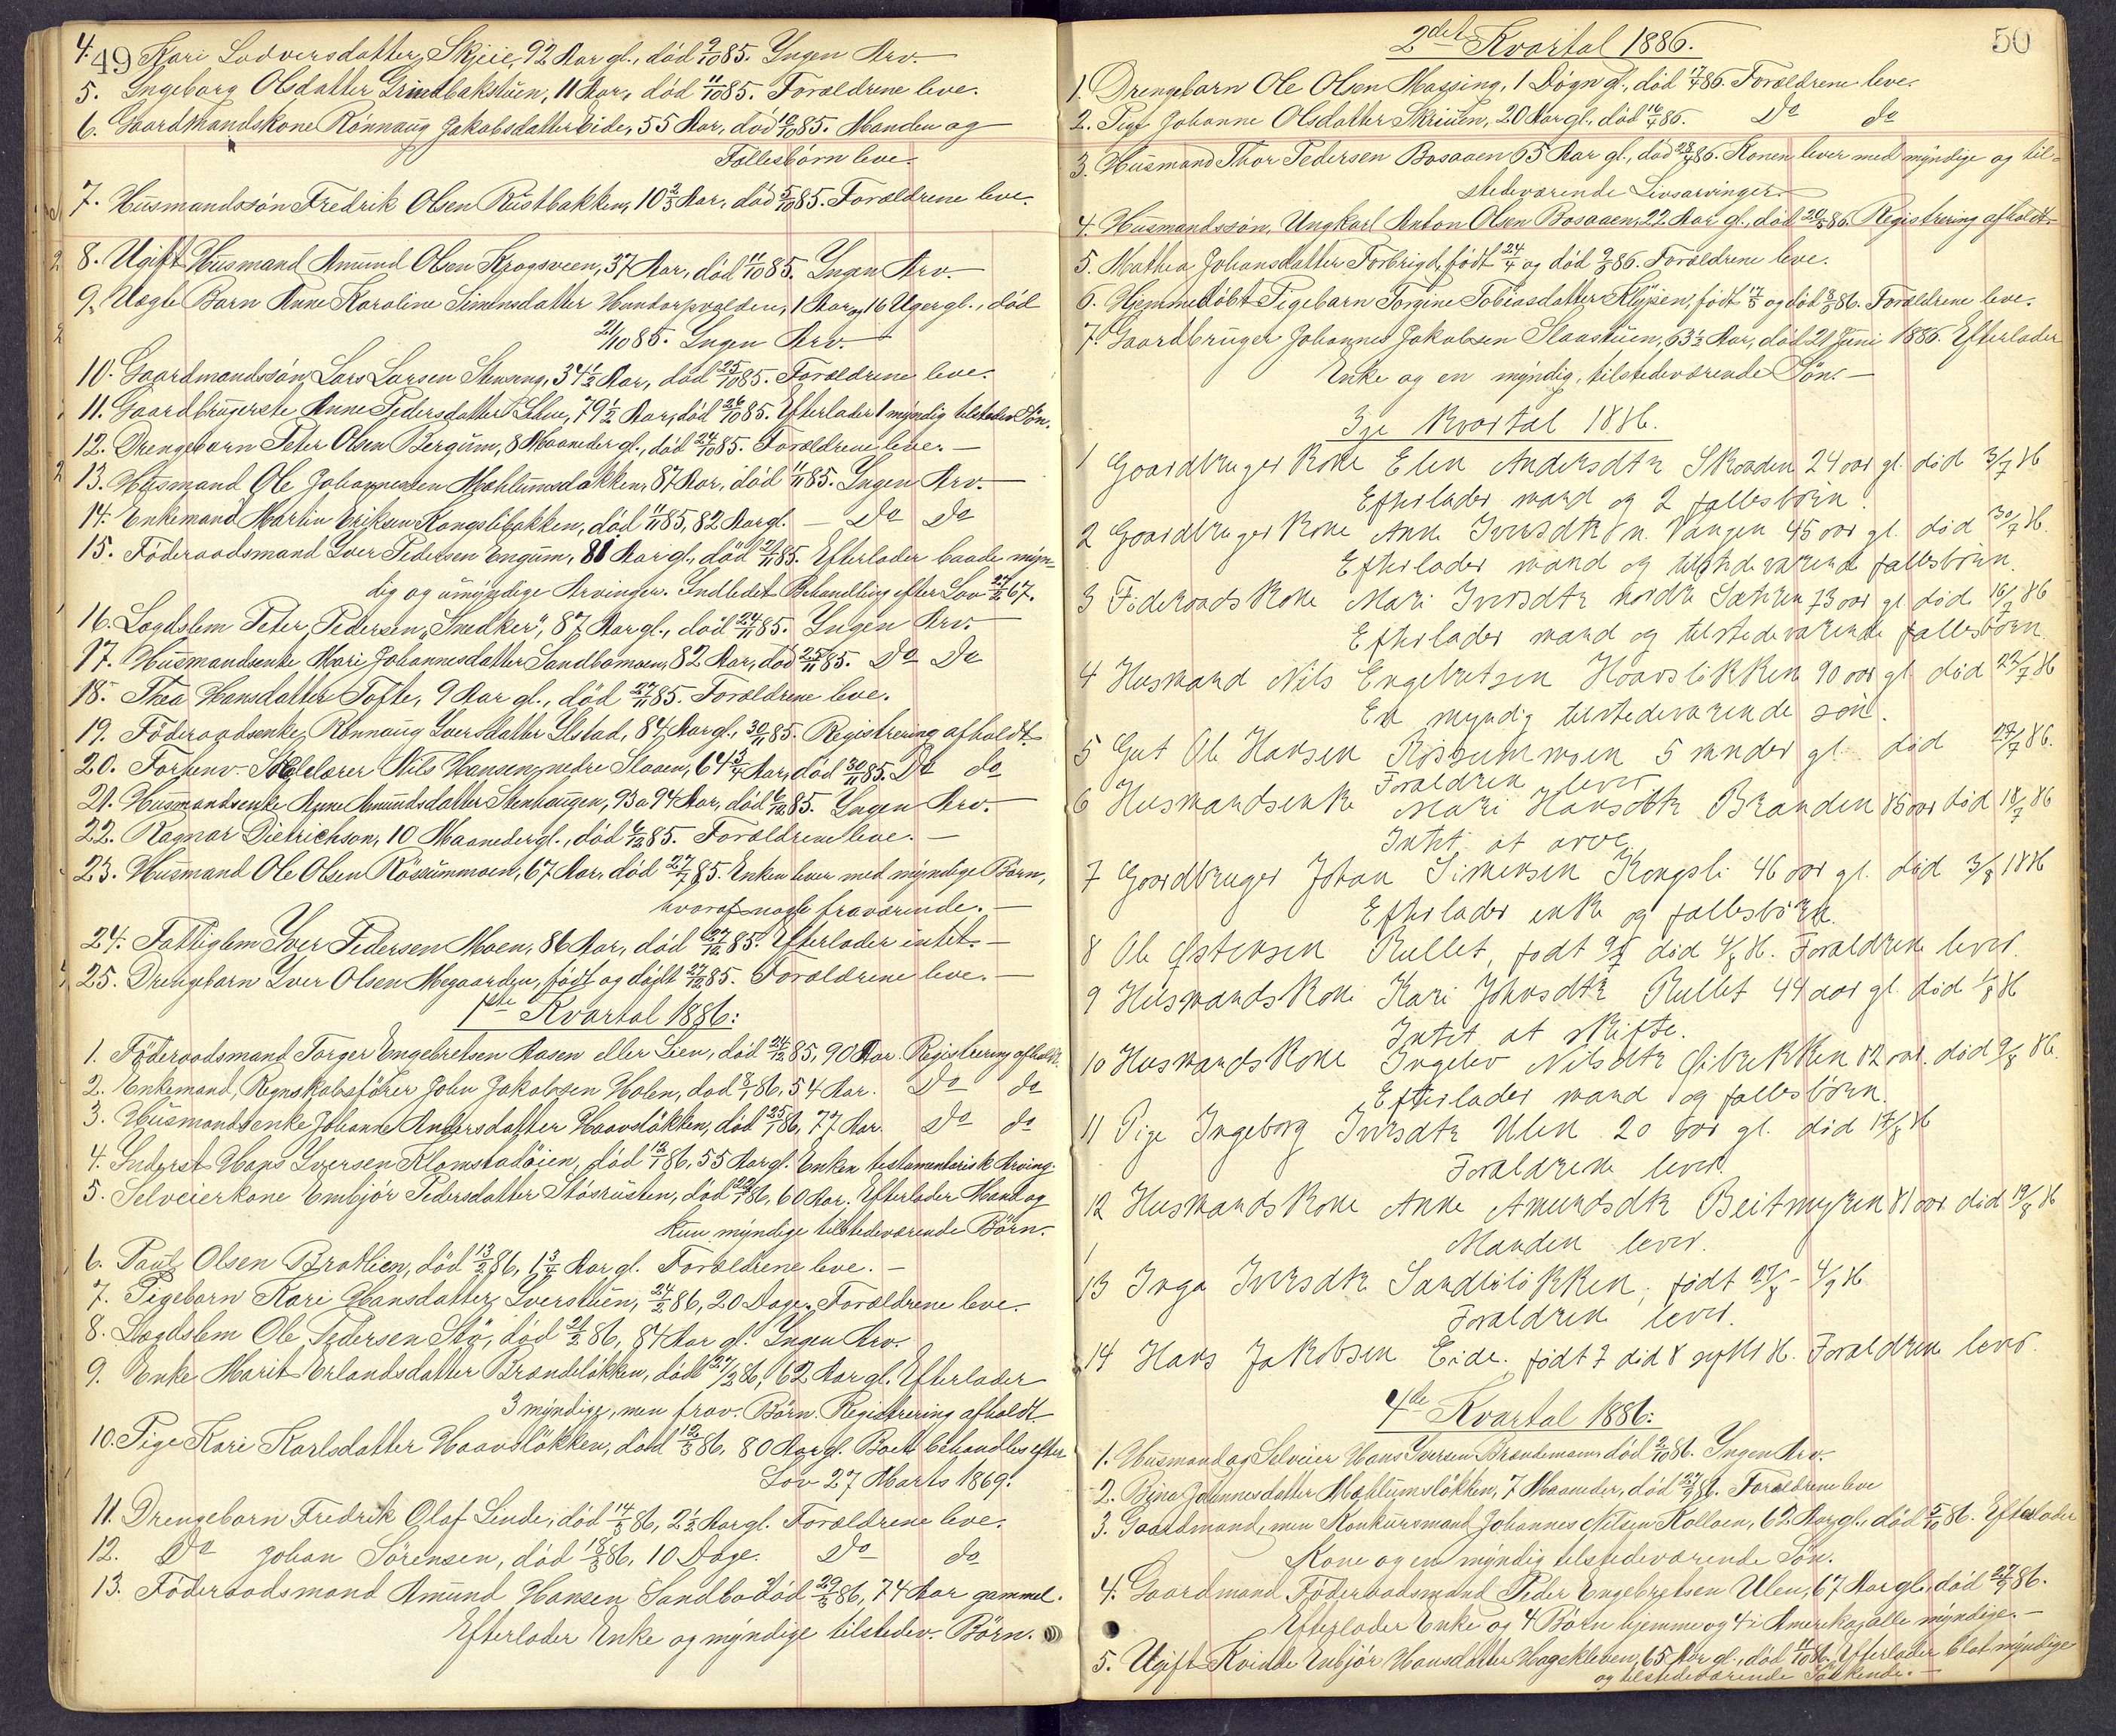 49
4. Kari Lodversdatter Skjeie, 92 Aar gl., död 9/10 85. Ingen Arv.
5. Ingeborg Olsdatter Grindbakstuen, 11 Aar, död 11/10 85. Forældrene leve.
6. Gaardmandskone Rönnaug Jakobsdatter Eide, 55 Aar, död 10/10 85. Manden og
Fællesbörn leve.
7. Husmandssön Fredrik Olsen Rustbakken, 10 2/3 Aar, död 5/10 85. Forældrene leve.
8. Ugift Husmand Amund Olsen Krogsveen, 37 Aar, död 11/10 85. Ingen Arv.
9. Uægte Barn Anne Karoline Simensdatter Hundorpvolden, 1 Aar og 16 Uger gl., död
21/10 85. Ingen Arv.
10. Gaardmandssön Lars Larsen Stenseng, 34 1/2 Aar, död 25/10 85. Forældrene leve.
11. Gaardbrugerske Anne Pedersdatter Loken, 79 1/2 Aar, död 26/10 85. Efterlader 1 myndig tilstedev. Sön.
12. Drengebarn Peter Olsen Bergum, 8 Maaneder gl., död 24/10 85. Forældrene leve.
13. Husmand Ole Johannessen Mæhlumsdokken, 87 Aar, död 4/11 85. Ingen Arv.
14. Enkemand Martin Eriksen Kongslibakken, död 11/11 85, 82 Aar gl. Do Do
15. Föderaadsmand Iver Pedersen Engum, 81 Aar gl., död 21/11 85. Efterlader baade myn-
dig og umyndige Arvinger. Indledet Behandling efter Lov 27/2 67.
16. Lægdslem Peter Pedersen "Snedker", 87 Aar gl., död 24/11 85. Ingen Arv.
17. Husmandsenke Mari Johannesdatter Sandbomoen, 82 Aar, död 25/11 85. Do Do
18. Thea Hansdatter Tofte, 9 Aar gl., död 27/11 85. Forældrene leve.
19. Föderaadsenke Rönnaug Iversdatter Ilstad, 84 Aar gl., 30/11 85. Registrering afholdt.
20. Forhenv. Skolelærer Nils Hansen nedre Slaaen, 64 3/4 Aar, död 30/11 85. Do do
21. Husmandsenke Anne Amundsdatter Stenhaugen, 93 a 94 Aar, död 6/12 85. Ingen Arv.
22. Ragnar Dietrichson, 10 Maaneder gl., död 6/12 85. Forældrene leve.
23. Husmand Ole Olsen Rössummoen, 67 Aar, död 27/7 85. Enken lever med myndige Börn,
hvoraf nogle fraværende.
24. Fattiglem Iver Pedersen Moen, 86 Aar, död 27/12 85. Efterlader intet.
25. Drengebarn Iver Olsen Megaarden, født og dödt 27/12 85. Forældrene leve.
1ste Kvartal 1886:
1. Föderaadsmand Torger Engebretsen Aasen eller Lien, död 24/12 85, 90 Aar. Registrering afholdt.
2. Enkemand, Regnskabsförer John Jakobsen Holen, död 8/1 86, 54 Aar. Do do
3. Husmandsenke Johanne Andersdatter Haavslökken, död 25/1 86, 77 Aar. Do do
4. Inderst Hans Iversen Klomstadöien, död 12/1 86, 55 Aar gl. Enken testamentarisk Arving.
5. Selveierkone Embjör Pedersdatter Stösrusten, död 22/1 86, 60 Aar. Efterlader Mand og
kun myndige tilstedeværende Börn.
6. Paul Olsen Bratlien, död 13/2 86, 1 3/4 Aar gl. Forældrene leve.
7. Pigebarn Kari Hansdatter Iverstuen, 24/2 86, 20 Dage. Forældrene leve.
8. Lægdslem Ole Pedersen Stö, död 21/2 86, 84 Aar gl. Ingen Arv.
9. Enke Marit Erlandsdatter Brændelökken, död 27/2 86, 62 Aar gl. Efterlader
3 myndige, men frav. Börn. Registrering afholdt
10. Pige Kari Karlsdatter Haavslökken, död 12/3 86, 80 Aar gl. Boet behandles efter
Lov 27 Marts 1869.
11. Drengebarn Fredrik Olaf Linde, död 14/3 86, 2 1/2 Aar gl. Forældrene leve.
12. Do Johan Sörensen, död 18/3 86, 10 Dage. Do do
13. Föderaadsmand Amund Hansen Sandbo död 29/3 86, 74 Aar gammel.
Efterlader Enke og myndige tilstedev. Börn.
50
2det Kvartal 1886.
1. Drengebarn Ole Olsen Massing, 1 Døgn gl., död 17/4 86. Forældrene leve.
2. Pige Johanne Olsdatter Skriuen, 20 Aar gl., död 16/4 86. Do do
3. Husmand Thor Pedersen Bosaaen 65 Aar gl., död 28/4 86. Konen lever med myndige og til-
stedeværende Livsarvinger.
4. Husmandssön, Ungkarl Anton Olsen Bosaaen, 22 Aar gl., död 20/5 86. Registrering afholdt.
5. Mathea Johansdatter Forbrigd, født 24/4 og död 9/5 86. Forældrene leve.
6. Hjemmedöbt Pigebarn Torgine Tobiasdatter Klypen, født 17/5 og död 8/6 86. Forældrene leve.
7. Gaardbruger Johannes Jakobsen Slaastuen, 63 1/2 Aar, död 21 Juni 1886. Efterlader
Enke og en myndig, tilstedeværende Sön.
3je Kvartal 1886.
1 Gaardbruger Kone Elen Andersdtr Skaaden 24 aar gl. död 3/7 86
Efterlader mand og 2 fællesbörn.
2 Gaardbruger Kone Anne Iversdtr n. Vangen 45 aar gl. död 30/7 86.
Efterlader mand og tilstedeværende fællesbörn.
3 Föderaads Kone Mari Iversdtr nordre Sætren 73 aar gl död 16/7 86
Efterlader mand og tilstedeværende fællesbörn.
4 Husmand Nils Engebretsen Haavsløkken 90 aar gl död 22/7 86
En myndig tilstedeværende sön.
5 Gut Ole Hansen Rossummoen 5 mnder gl. död 27/7 86.
Forældrene lever
6 Husmandsenke Mari Hansdtr Branden 85 aar död 18/7 86
Intet at arve.
7 Gaardbruger Johan Simensen Kongsli 46 aar gl. död 3/8 1886
Efterlader enke og fællesbörn.
8 Ole Østensen Rullet, født 9/7 död 4/8 86. Forældrene lever.
9 Husmandskone Kari Johnsdtr Rullet 44 aar gl. död 1/8 86
Intet at skifte.
10 Husmandskone Ingelev Nilsdtr Öibrekken 82 aar. död 9/8 86.
Efterlader mand og fællesbörn.
11 Pige Ingeborg Iversdtr Ulen 20 aar gl. död 17/8 86
Forældrene lever
12 Husmands Kone Anne Amundsdtr Beitmyren 81 aar död 19/8 86
Manden lever.
13 Inga Iversdtr Sandbiløkken, født 27/8 - 4/9 86
Forældrene lever.
14 Hans Jakobsen Eide. født 7 död 8 septbr 86. Forældrene lever.
4de Kvartal 1886:
1. Husmand og Selveier Hans Iversen Brandemoen död 2/10 86. Ingen Arv.
2. Rina Johannesdatter Mæhlumsløkken, 7 Maaneder, död 27/9 86. Forældrene leve
3. Gaardmand, men Konkursmand Johannes Nilsen Kolloen, 62 Aar gl., död 5/10 86. Efterlader
Kone og en myndig tilstedeværende Sön.
4. Gaardmand, Föderaadsmand Peder Engebretsen Ulen, 67 Aar gl., död 27/9 86.
Efterlader Enke og 4 Börn hjemme og 4 i Amerika, alle myndige.
5. Ugift Kvinde Enbjör Hansdatter Hagekleven, 65 Aar gl., död 11/10 86. Efterlader blot myndige
og tilstedeværende Söskende.